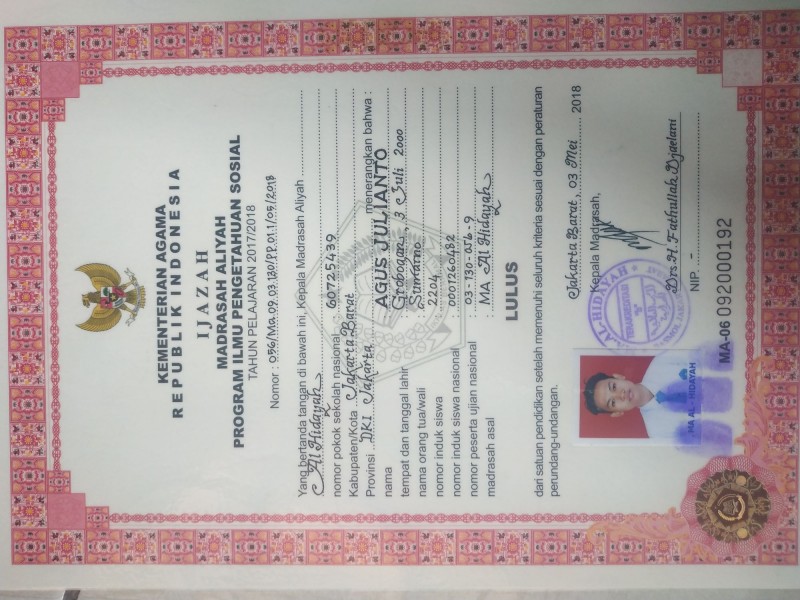 KEMENTERIAN AGAMA
REPUBLIK INDONESIA
IJAZAH
MADRASAH ALIYAH
PROGRAM ILMU PENGETAHUAN SOSIAL
TAHUN PELAJARAN 2017/2018
Nomor : 056/Ma.09.03.130/PP.01.1/05/2018
Yang bertanda tangan di bawah ini, Kepala Madrasah Aliyah
Al Hidayah
nomor pokok sekolah nasional 60725439
Kabupaten/Kota Jakarta Barat
Provinsi DKI Jakarta menerangkan bahwa :
nama : AGUS JULIANTO
tempat dan tanggal lahir : Grobogan, 3 Juli 2000
nama orang tua/wali : Sumarno
nomor induk siswa : 2204
nomor induk siswa nasional : 0001260482
nomor peserta ujian nasional : 03-130-056-9
madrasah asal : MA Al Hidayah
LULUS
dari satuan pendidikan setelah memenuhi seluruh kriteria sesuai dengan peraturan
perundang-undangan.
Jakarta Barat, 03 Mei 2018
Kepala Madrasah,
AL-HIDAYAH
Drs. H. Fathullah Djaelani
NIP. -
MA AL - HIDAYAH
MA-06 092000192